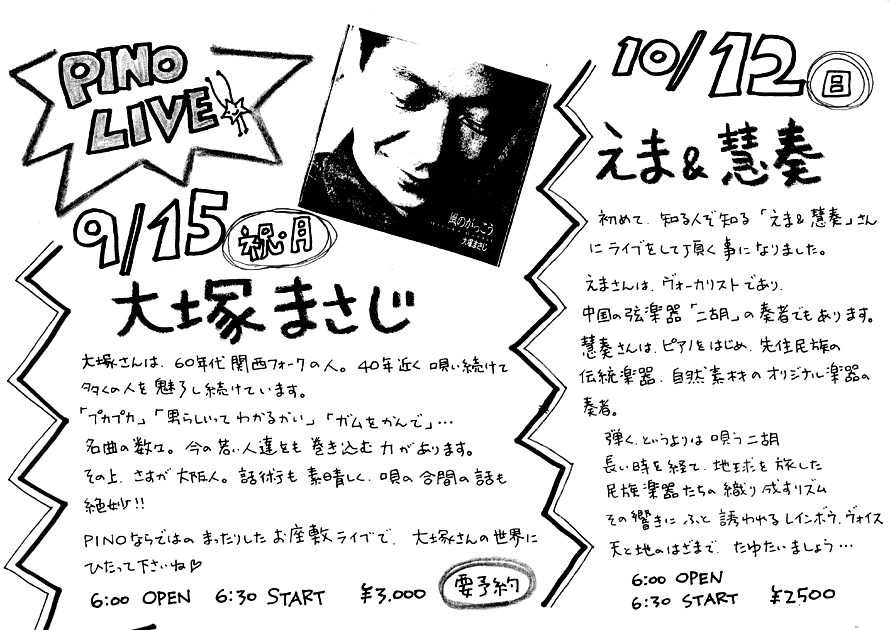 PINO
LIVE
9/15 祝・月
風のがっこう
大塚まさじ
大塚まさじ
大塚さんは、60年代関西フォークの人。40年近く唄い続けて
多くの人を魅了し続けています。
「プカプカ」「男らしいってわかるかい」「ガムをかんで」…
名曲の数々。今の若い人達をも巻き込む力があります。
その上、さすが大阪人。話術も素晴しく、唄の合間の話も
絶妙!!
PINOならではのまったりしたお座敷ライブで、大塚さんの世界に
ひたって下さいね♡
6:00 OPEN 6:30 START ¥3.000 要予約
10/12 日
えま&慧奏
初めて、知る人ぞ知る「えま&慧奏」さん
にライブをして頂く事になりました。
えまさんは、ヴォーカリストであり、
中国の弦楽器「二胡」の奏者でもあります。
慧奏さんは、ピアノをはじめ、先住民族の
伝統楽器、自然素材のオリジナル楽器の
奏者。
弾く、というよりは唄う二胡
長い時を経て、地球を旅した
民族楽器たちの織り成すリズム
その響きにふと誘われるレインボウ.ヴォイス
天と地のはざまで、たゆたいましょう…
6:00 OPEN
6:30 START ¥2500